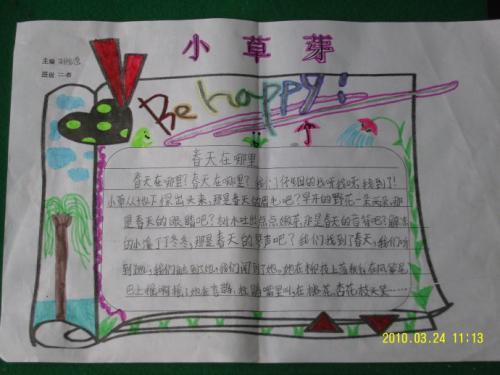 小草芽
主编
班级 二.
Be happy!
春天在哪里
春天在哪里?春天在哪里?我们仔细的找呀找呀,找到了!
小草从地下探出头来,那是春天的眉毛吧?早开的野花一朵两朵,那
是春天的眼睛吧?树木吐出点点嫩芽,那是春天的音符吧?解冻
的小溪丁丁冬冬,那是春天的琴声吧?我们找到了春天,我们听
到她,我们触到了她,我们闻到了她。她在柳枝上荡秋千,在风筝尾
巴上摇啊摇;她在喜鹊、杜鹃嘴里叫,在桃花、杏花枝头笑……
2010.03.24 11:13